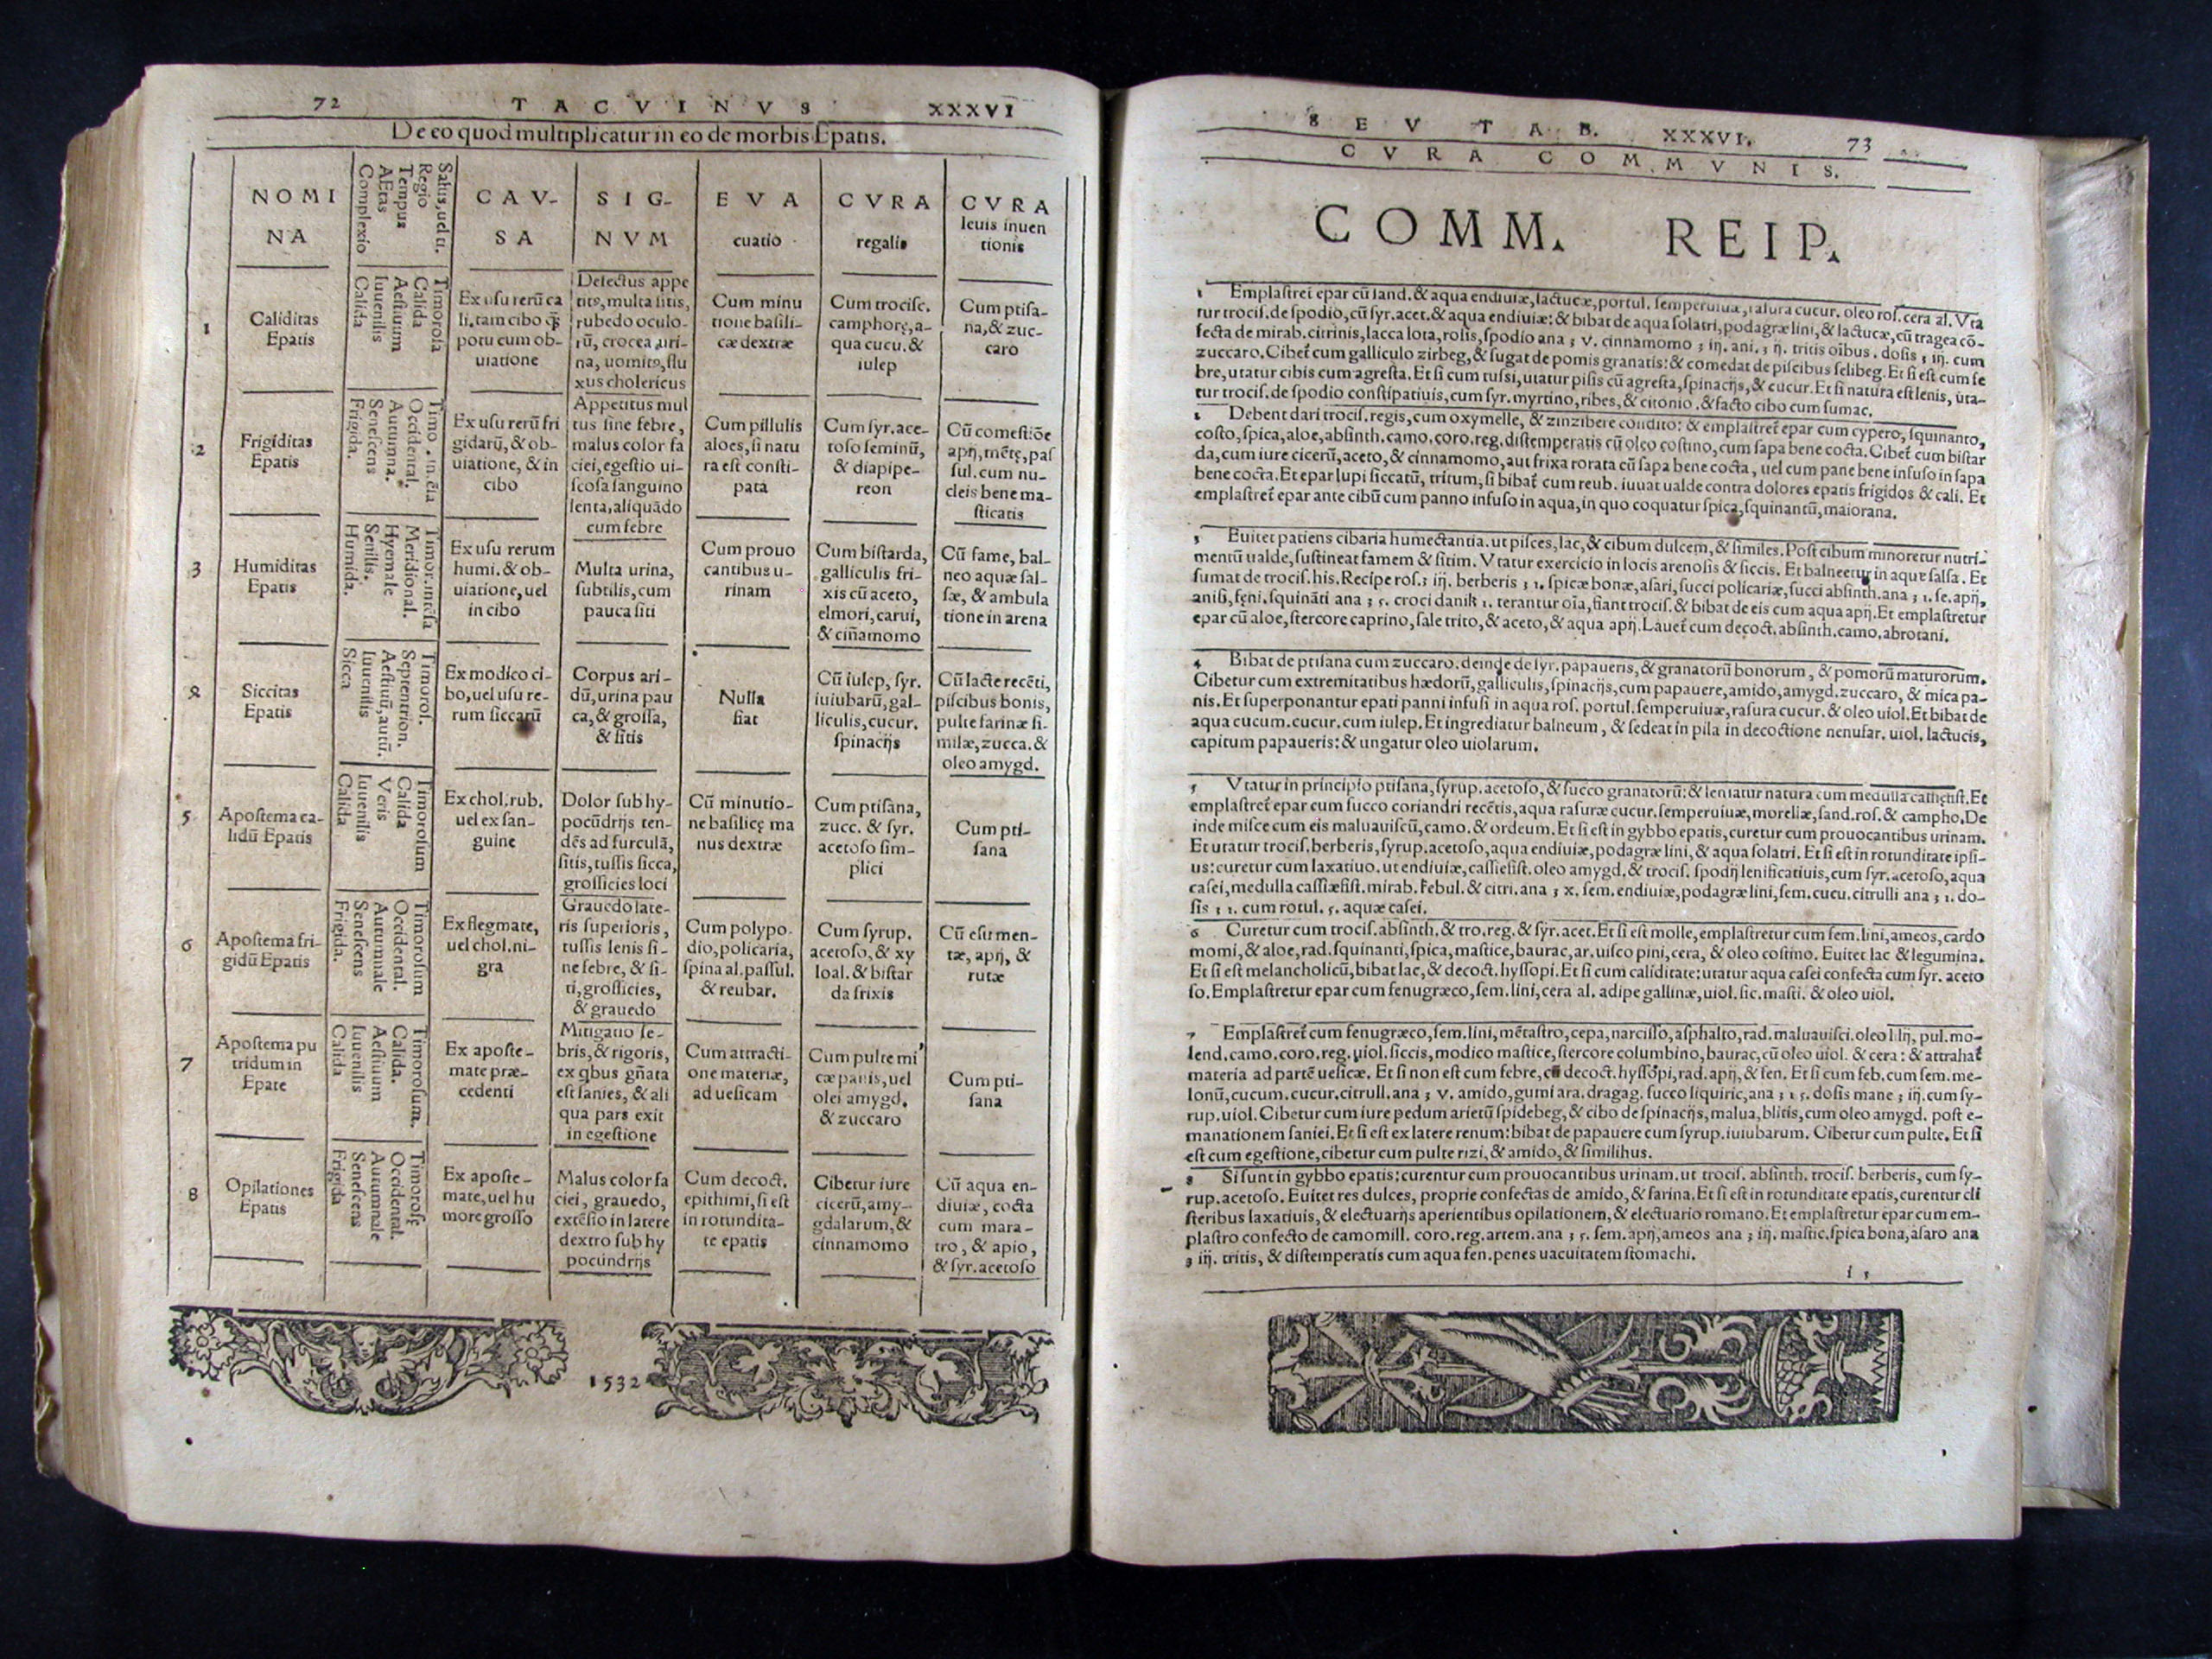 72 TACVINVS XXXVI
De eo quod multiplicatur in eo de morbis Epatis.
NOMI
NA
Salus, uel ti.
Regio
Tempus
AEtas
Complexio
CAV-
SA
SIG-
NVM
EVA
cuatio
CVRA
regalis
CVRA
leuis inuen
tionis
1
Caliditas
Epatis
Timorosa
Calida
Aestiuum
Iuuenilis
Calida
Ex usu rerũ ca
li. tam cibo q̃
potu cum ob-
uiatione
Defectus appe
tit9, multa sitis,
rubedo oculo-
rũ, crocea uri-
na, uomit9, flu
xus cholericus
Cum minu
tione basili-
cæ dextræ
Cum trocisc.
camphorę, a-
qua cucu. &
iulep
Cum ptisa-
na, & zuc-
caro
2
Frigiditas
Epatis
Occidental.
Autumna.
Senescens
Frigida.
Ex usu rerũ fri
gidarũ, & ob-
uiatione, & in
cibo
Appetitus mul
tus sine febre,
malus color fa
ciei, egestio ui-
scosa sanguino
lenta, aliquãdo
cum febre
Cum pillulis
aloes, si natu
ra est consti-
pata
Cum syr. ace-
toso seminũ,
& diapipe-
reon
Cũ comestiõe
apij, mẽtę, pas
sul. cum nu-
cleis bene ma-
sticatis
3
Humiditas
Epatis
Meridional.
Hyemale
Senilis.
Humida.
Ex usu rerum
humi. & ob-
uiatione, uel
in cibo
Multa urina,
subtilis, cum
pauca siti
Cum prouo
cantibus u-
rinam
Cum bistarda,
galliculis fri-
xis cũ aceto,
elmori, carui,
& ciñamomo
Cũ fame, bal-
neo aquæ sal-
sæ, & ambula
tione in arena
4
Siccitas
Epatis
Timoros.
Septentrion.
Aestiuũ, autũ.
Iuuenilis
Sicca
Ex modico ci-
bo, uel usu re-
rum siccarũ
Corpus ari-
dũ, urina pau
ca, & grossa,
& sitis
Nulla
fiat
Cũ iulep, syr.
iuiubarũ, gal-
liculis, cucur.
spinacijs
Cũ lacte recẽti,
piscibus bonis,
pulte farinæ si-
milæ, zucca. &
oleo amygd.
5
Apostema ca-
lidũ Epatis
Timorosum
Calida
Veris
Iuuenilis
Calida
Ex chol. rub.
uel ex san-
guine
Dolor sub hy-
pocũdrijs ten-
dẽs ad furculã,
sitis, tussis sicca,
grossicies loci
Cũ minutio-
ne basilicę ma
nus dextræ
Cum ptisana,
zucc. & syr.
acetoso sim-
plici
Cum pti-
sana
6
Apostema fri-
gidũ Epatis
Timorosum
Occidental.
Autumnale
Senescens
Frigida.
Ex flegmate,
uel chol. ni-
gra
Grauedo late-
ris superioris,
tussis lenis si-
ne febre, & si-
ti, grossicies,
& grauedo
Cum polypo.
dio, policaria,
spina al. passul.
& reubar.
Cum syrup.
acetoso, & xy
loal. & bistar
da frixis
Cũ esu men-
tæ, apij, &
rutæ
7
Apostema pu
tridum in
Epate
Timorosum.
Calida.
Aestiuum
Iuuenilis
Calida
Ex aposte-
mate præ-
cedenti
Mitigatio fe-
bris, & rigoris,
ex qbus gñata
est sanies, & ali
qua pars exit
in egestione
Cum attracti-
one materiæ,
ad uesicam
Cum pulte mi
cæ panis, uel
olei amygd.
& zuccaro
Cum pti-
sana
8
Opilationes
Epatis
Timorosę
Occidental.
Autumnale
Senescens
Frigida
Ex aposte-
mate, uel hu
more grosso
Malus color fa
ciei, grauedo,
extẽsio in latere
dextro sub hy
pocundrijs
Cum decoct.
epithimi, si est
in rotundita-
te epatis
Cibetur iure
cicerũ, amy-
gdalarum, &
cinnamomo
Cũ aqua en-
diuiæ, cocta
cum mara-
tro, & apio,
& syr. acetoso
1532
SEV TAB. XXXVI. 73
CVRA COMMVNIS.
COMM. REIP.
1 Emplastret̃ epar cũ sand. & aqua endiuiæ, lactucæ, portul. semperuiuæ, rasura cucur. oleo ros. cera al. Vta
tur trocis. de spodio, cũ syr. acet. & aqua endiuiæ: & bibat de aqua solatri, podagræ lini, & lactucæ, cũ tragea cõ-
fecta de mirab. citrinis, lacca lota, rosis, spodio ana ʒ v. cinnamomo ʒ iij. ani. ʒ ij. tritis oĩbus. dosis ʒ iij. cum
zuccaro. Cibet̃ cum galliculo zirbeg, & sugat de pomis granatis: & comedat de piscibus selibeg. Et si est cum fe
bre, utatur cibis cum agresta. Et si cum tussi, utatur pisis cũ agresta, spinacijs, & cucur. Et si natura est lenis, uta-
tur trocis. de spodio constipatiuis, cum syr. myrtino, ribes, & citonio. & facto cibo cum sumac.
2 Debent dari trocis. regis, cum oxymelle, & zinzibere condito: & emplastret̃ epar cum cypero, squinanto,
costo, spica, aloe, absinth. camo. coro. reg. distemperatis cũ oleo costino, cum sapa bene cocta. Cibet̃ cum bistar
da, cum iure cicerũ, aceto, & cinnamomo, aut frixa rorata cũ sapa bene cocta, uel cum pane bene infuso in sapa
bene cocta. Et epar lupi siccatũ, tritum, si bibat̃ cum reub. iuuat ualde contra dolores epatis frigidos & cali. Et
emplastret̃ epar ante cibũ cum panno infuso in aqua, in quo coquatur spica, squinantũ, maiorana.
3 Euitet patiens cibaria humectantia. ut pisces, lac, & cibum dulcem, & similes. Post cibum minoretur nutri-
mentũ ualde, sustineat famem & sitim. Vtatur exercicio in locis arenosis & siccis. Et balneetur in aqua salsa. Et
sumat de trocis. his. Recipe ros. ʒ iij. berberis ʒ 1. spicæ bonæ, asari, succi policariæ, succi absinth. ana ʒ 1. se. apij,
anisi, fęni. squinãti ana ʒ s. croci danik 1. terantur oĩa, fiant trocis. & bibat de eis cum aqua apij. Et emplastretur
epar cũ aloe, stercore caprino, sale trito, & aceto, & aqua apij. Lauet̃ cum decoct. absinth. camo, abrotani.
4 Bibat de ptisana cum zuccaro. deinde de syr. papaueris, & granatorũ bonorum, & pomorũ maturorum.
Cibetur cum extremitatibus hædorũ, galliculis, spinacijs, cum papauere, amido, amygd. zuccaro, & mica pa-
nis. Et superponantur epati panni infusi in aqua ros. portul. semperuiuæ, rasura cucur. & oleo uiol. Et bibat de
aqua cucum. cucur. cum iulep. Et ingrediatur balneum, & sedeat in pila in decoctione nenufar. uiol. lactucis,
capitum papaueris: & ungatur oleo uiolarum.
5 Vtatur in principio ptisana, syrup. acetoso, & succo granatorũ: & leniatur natura cum medulla cassięfist. Et
emplastret̃ epar cum succo coriandri recẽtis, aqua rasuræ cucur. semperuiuæ, moreliæ, sand. ros. & campho. De
inde misce cum eis maluauiscũ, camo. & ordeum. Et si est in gybbo epatis, curetur cum prouocantibus urinam.
Et utatur trocis. berberis, syrup. acetoso, aqua endiuiæ, podagræ lini, & aqua solatri. Et si est in rotunditate ipsi-
us: curetur cum laxatiuo. ut endiuiæ, cassiefist. oleo amygd. & trocis. spodij lenificatiuis, cum syr. acetoso, aqua
casei, medulla cassiæfist. mirab. kebul. & citri. ana ʒ x. sem. endiuiæ, podagræ lini, sem. cucu. citrulli ana ʒ 1. do-
sis ʒ 1. cum rotul. s. aquæ casei.
6 Curetur cum trocis. absinth. & tro. reg. & syr. acet. Et si est molle, emplastretur cum sem. lini, ameos, cardo
momi, & aloe, rad. squinanti, spica, mastice, baurac, ar. uisco pini, cera, & oleo costino. Euitet lac & legumina.
Et si est melancholicũ, bibat lac, & decoct. hyssopi. Et si cum caliditate: utatur aqua casei confecta cum syr. aceto
so. Emplastretur epar cum fenugræco, sem. lini, cera al. adipe gallinæ, uiol. sic. masti. & oleo uiol.
7 Emplastret̃ cum fenugræco, sem. lini, mẽtastro, cepa, narcisso, asphalto, rad. maluauisci. oleo lilij, pul. mo-
lend. camo. coro. reg. uiol. siccis, modico mastice, stercore columbino, baurac, cũ oleo uiol. & cera: & attrahat̃
materia ad partẽ uesicæ. Et si non est cum febre, cũ decoct. hyssopi, rad. apij, & fen. Et si cum feb. cum sem. me-
lonũ, cucum. cucur. citrull. ana ʒ v. amido, gumi ara. dragag. succo liquiric, ana ʒ 1 s. dosis mane ʒ iij. cum sy-
rup. uiol. Cibetur cum iure pedum arietũ spidebeg, & cibo de spinacijs, malua, blitis, cum oleo amygd. post e-
manationem saniei. Et si est ex latere renum: bibat de papauere cum syrup. iuiubarum. Cibetur cum pulte. Et si
est cum egestione, cibetur cum pulte rizi, & amido, & similibus.
8 Si sunt in gybbo epatis: curentur cum prouocantibus urinam. ut trocis. absinth. trocis. berberis, cum sy-
rup. acetoso. Euitet res dulces, proprie confectas de amido, & farina. Et si est in rotunditate epatis, curentur cli
steribus laxatiuis, & electuarijs aperientibus opilationem, & electuario romano. Et emplastretur epar cum em-
plastro confecto de camomill. coro. reg. artem. ana ʒ s. sem. apij, ameos ana ʒ iij. mastic. spica bona, asaro ana
ʒ iij. tritis, & distemperatis cum aqua fen. penes uacuitatem stomachi.